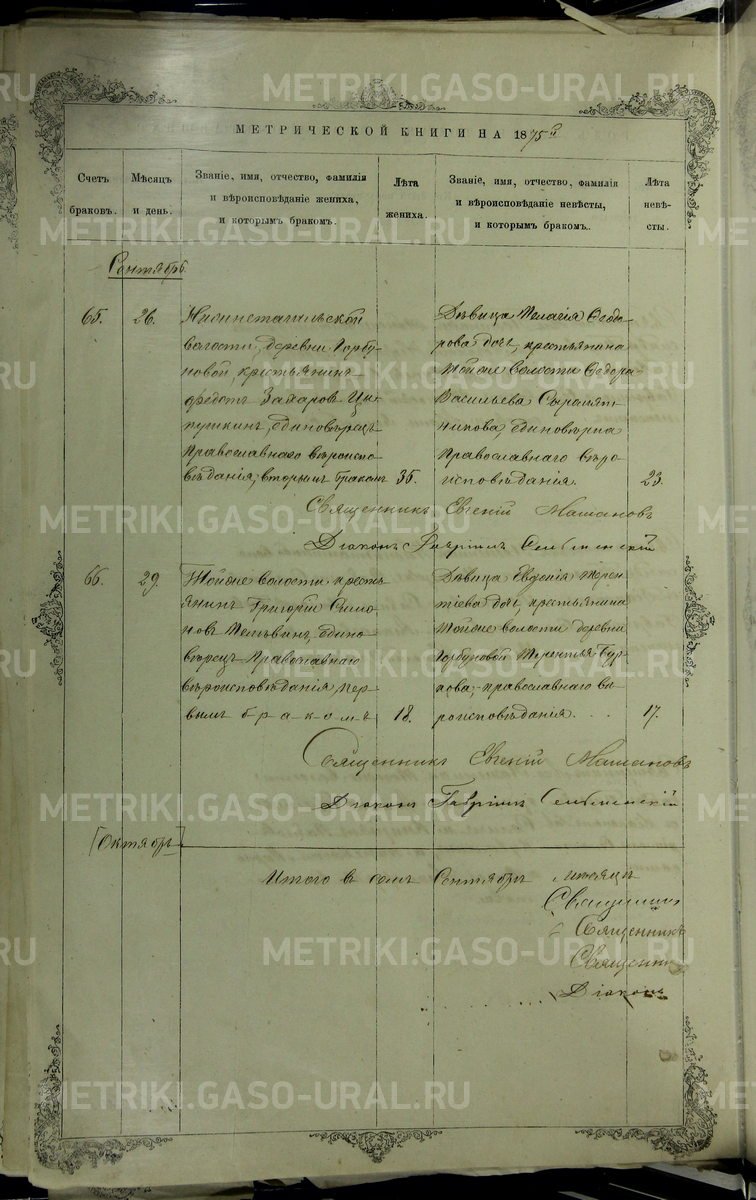 METRIKI.GASO-URAL.RU
МЕТРИЧЕСКОЙ КНИГИ НА 1875й
Счетъ браковъ.
Мѣсяцъ и день.
Званіе, имя, отчество, фамилія
и вѣроисповѣданіе жениха,
и которымъ бракомъ.
Лѣта жениха.
Званіе, имя, отчество, фамилія
и вѣроисповѣданіе невѣсты,
и которымъ бракомъ.
Лѣта невѣсты.
Сентябрь
65. 26.
Нижнетагильской
волости, деревни Горбу-
новой, крестьянинъ
Федотъ Захаровъ
единовѣрецъ
Православнаго вѣроиспо-
вѣданія, вторымъ бракомъ 35.
Дѣвица Пелагія Ѳедо-
рова дочь, крестьянина
Тойже волости Ѳедора
Васильева Сыромят-
никова, единовѣрка
православнаго вѣро-
исповѣданія. 23.
Священникъ Евгеній
Діаконъ Гавріилъ
66. 29.
Тойже волости кресть-
янинъ Григорій Симо-
новъ едино-
вѣрецъ Православнаго
вѣроисповѣданія пер-
вымъ бракомъ 18.
Дѣвица Евдокія Терен-
тіева дочь, крестьянина
Тойже волости деревни
Горбуновой Терентія
православнаго вѣ-
роисповѣданія. . . 17.
Священникъ Евгеній
Діаконъ Гавріилъ
Октябрь
Итого в семъ Сентябрь мѣсяцѣ
Священникъ
Священникъ
Священникъ
Діаконъ